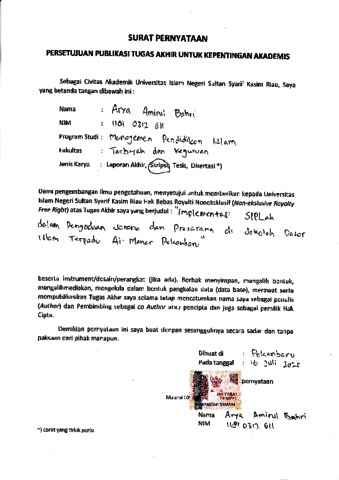 SURAT PERNYATAAN
PERSETUJUAN PUBLIKASI TUGAS AKHIR UNTUK KEPENTINGAN AKADEMIS
Sebagai Civitas Akademik Universitas Islam Negeri Sultan Syarif Kasim Riau, Saya
yang betanda tangan dibawah ini :
Nama : Arya Amirul Bahri
NIM : 1181 0312 611
Program Studi : Manajemen Pendidikan Islam
Fakultas : Tarbiyah dan Keguruan
Jenis Karya : Laporan Akhir, Skripsi, Tesis, Disertasi *)
Demi pengembangan ilmu pengetahuan, menyetujui untuk memberikan kepada Universitas
Islam Negeri Sultan Syarif Kasim Riau Hak Bebas Royalti Noneksklusif (Non-eksklusive Royalty
Free Right) atas Tugas Akhir saya yang berjudul : "Implementasi SIPLah
dalam Pengadaan Sarana dan Prasarana di Sekolah Dasar
Islam Terpadu Al-Manar Pekanbaru"
beserta instrument/desain/perangkat (jika ada). Berhak menyimpan, mengalih bentuk,
mengalihmediakan, mengelola dalam bentuk pangkalan data (data base), merawat serta
mempublikasikan Tugas Akhir saya selama tetap mencatumkan nama saya sebagai penulis
(Author) dan Pembimbing sebagai co Author atau pencipta dan juga sebagai pemilik Hak
Cipta.
Demikian pernyataan ini saya buat dengan sesungguhnya secara sadar dan tanpa
paksaan dari pihak manapun.
Dibuat di : Pekanbaru
Pada tanggal : 16 Juli 2025
pernyataan
Nama Arya Amirul Bahri
NIM 1181 0312 611
*) coret yang tidak perlu